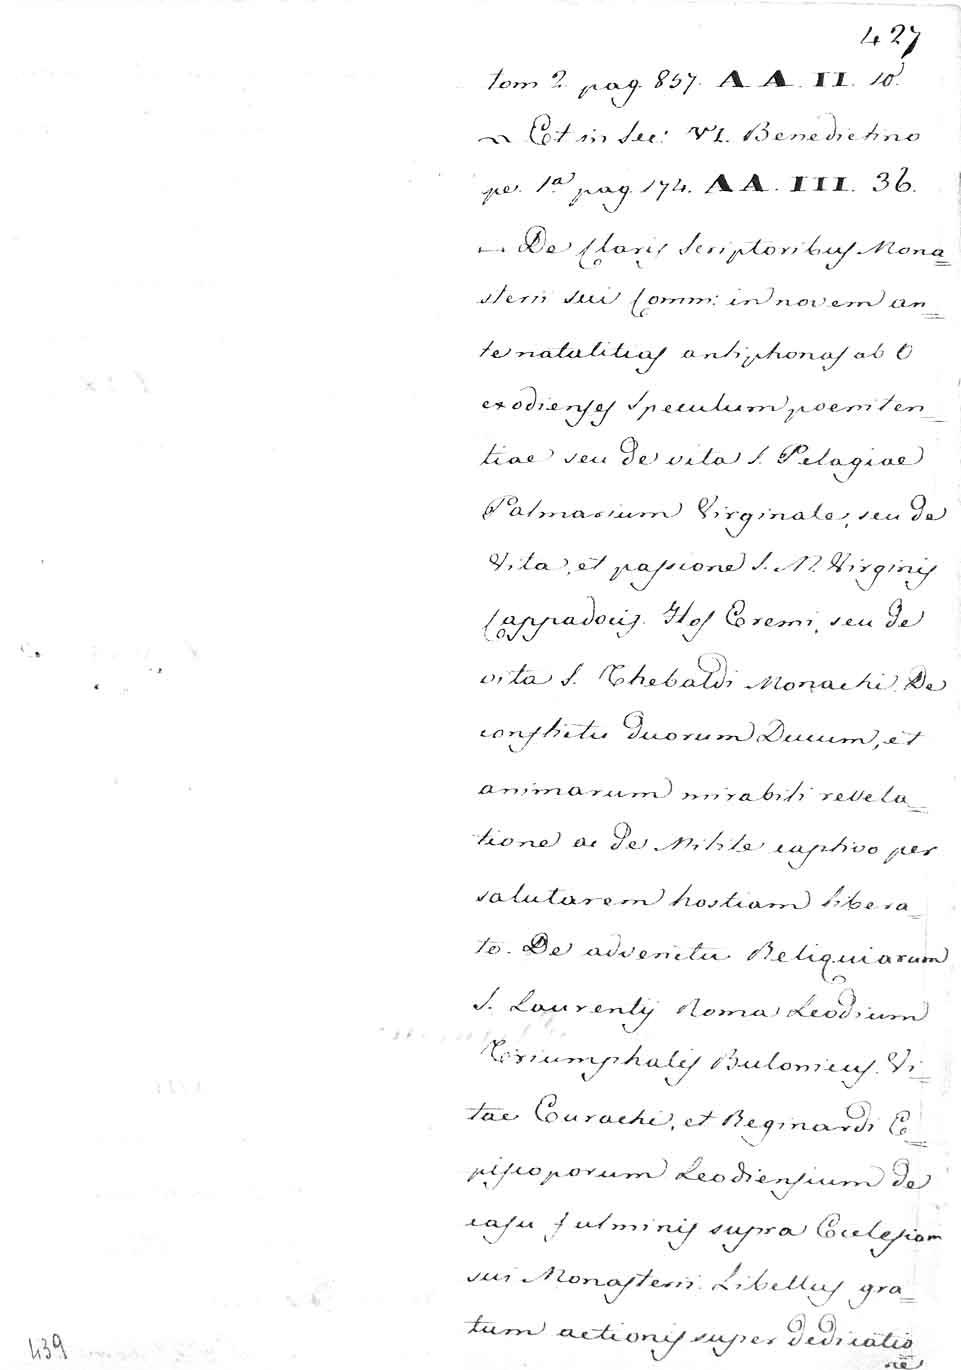 427
tom 2. pag. 857. AA. II. 10.
~ Et in Sec: VI. Benedictino
pe. 1.a pag. 174. AA. III. 36.
— De Claris Scriptoribus Mona=
sterii sui Comm: in novem an=
te natalitias antiphonas ab O
exodienses Speculum poeniten=
tiae seu de vita S. Pelagiae
Palmarium Virginale, seu de
Vita, et passione S. M. Virginis
Cappadocis. Flos Eremi, seu de
vita S. Thebaldi Monachi. De
conflictu duorum Ducum, et
animarum mirabili revela=
tione ac de Milite captivo per
salutarem hostiam libera=
to. De adventu Reliquiarum
S. Laurentij Roma Leodium
Triumphalis Bulonicus. Vi=
tae Eurachi, et Reginardi E=
piscoporum Leodiensium de
casu fulminis supra Ecclesiam
sui Monasterii. Libellus gra=
tum actionis super dedicatio
ne
439